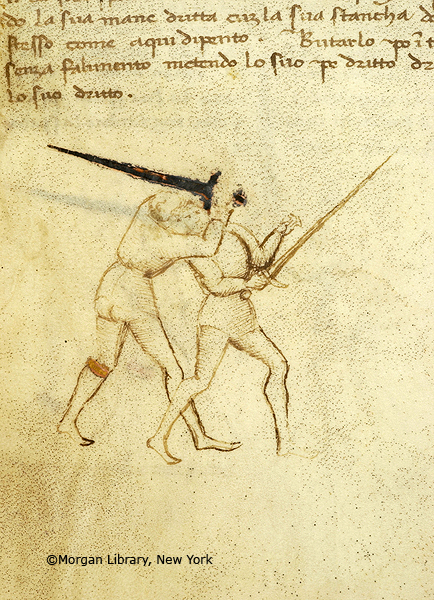 do la sua mane dritta cuz la sua stancha de
stesso come aqui dipento. Butarlo po i t
senza falimento metendo lo suo pe dritto dr
lo suo dritto.
©Morgan Library, New York